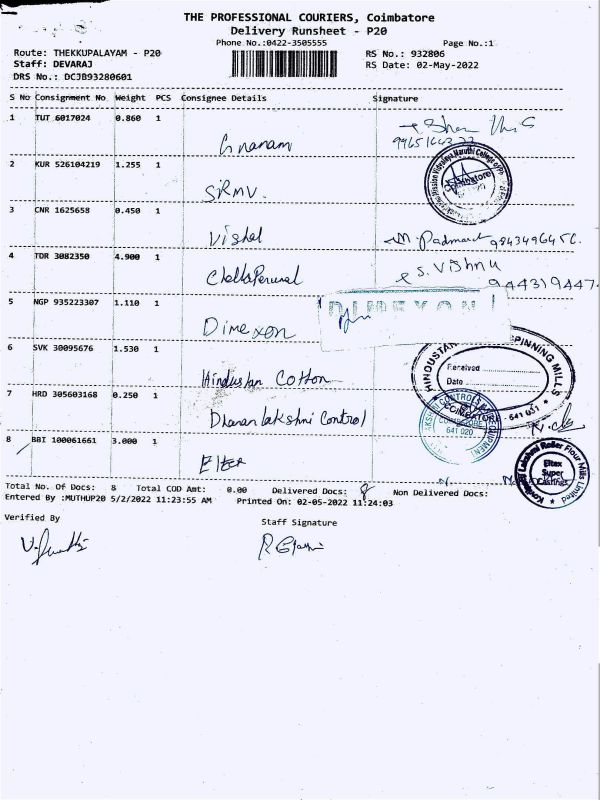 THE PROFESSIONAL COURIERS, Coimbatore
Delivery Runsheet - P20
Phone No.:0422-3505555 Page No.:1
Route: THEKKUPALAYAM - P20 RS No.: 932806
Staff: DEVARAJ RS Date: 02-May-2022
DRS No.: DCJB93280601
S No Consignment No Weight PCS Consignee Details Signature
1 TUT 6017024 0.860 1
Gnanam
2 KUR 526104219 1.255 1
SRMV. Coimbatore
3 CNR 1625658 0.450 1
Vishal M. Padma
4 TDR 3082350 4.900 1
S. Vishnu
944319447
5 NGP 935223307 1.110 1
DIMEXON
Dimexon
6 SVK 30095676 1.530 1
HINDUSTAN SPINNING MILLS
Received
Date
COIMBATORE - 641 031
Hindustan Cotton
7 HRD 305603168 0.250 1
Dhanalakshmi Control
COIMBATORE
641 020
8 BBI 100061661 3.000 1
Lakshmi Roller Flour Mills Limited
Eltex
Super
Castings
Total No. Of Docs: 8 Total COD Amt: 0.00 Delivered Docs: 8 Non Delivered Docs:
Entered By :MUTHUP20 5/2/2022 11:23:55 AM Printed On: 02-05-2022 11:24:03
Verified By Staff Signature